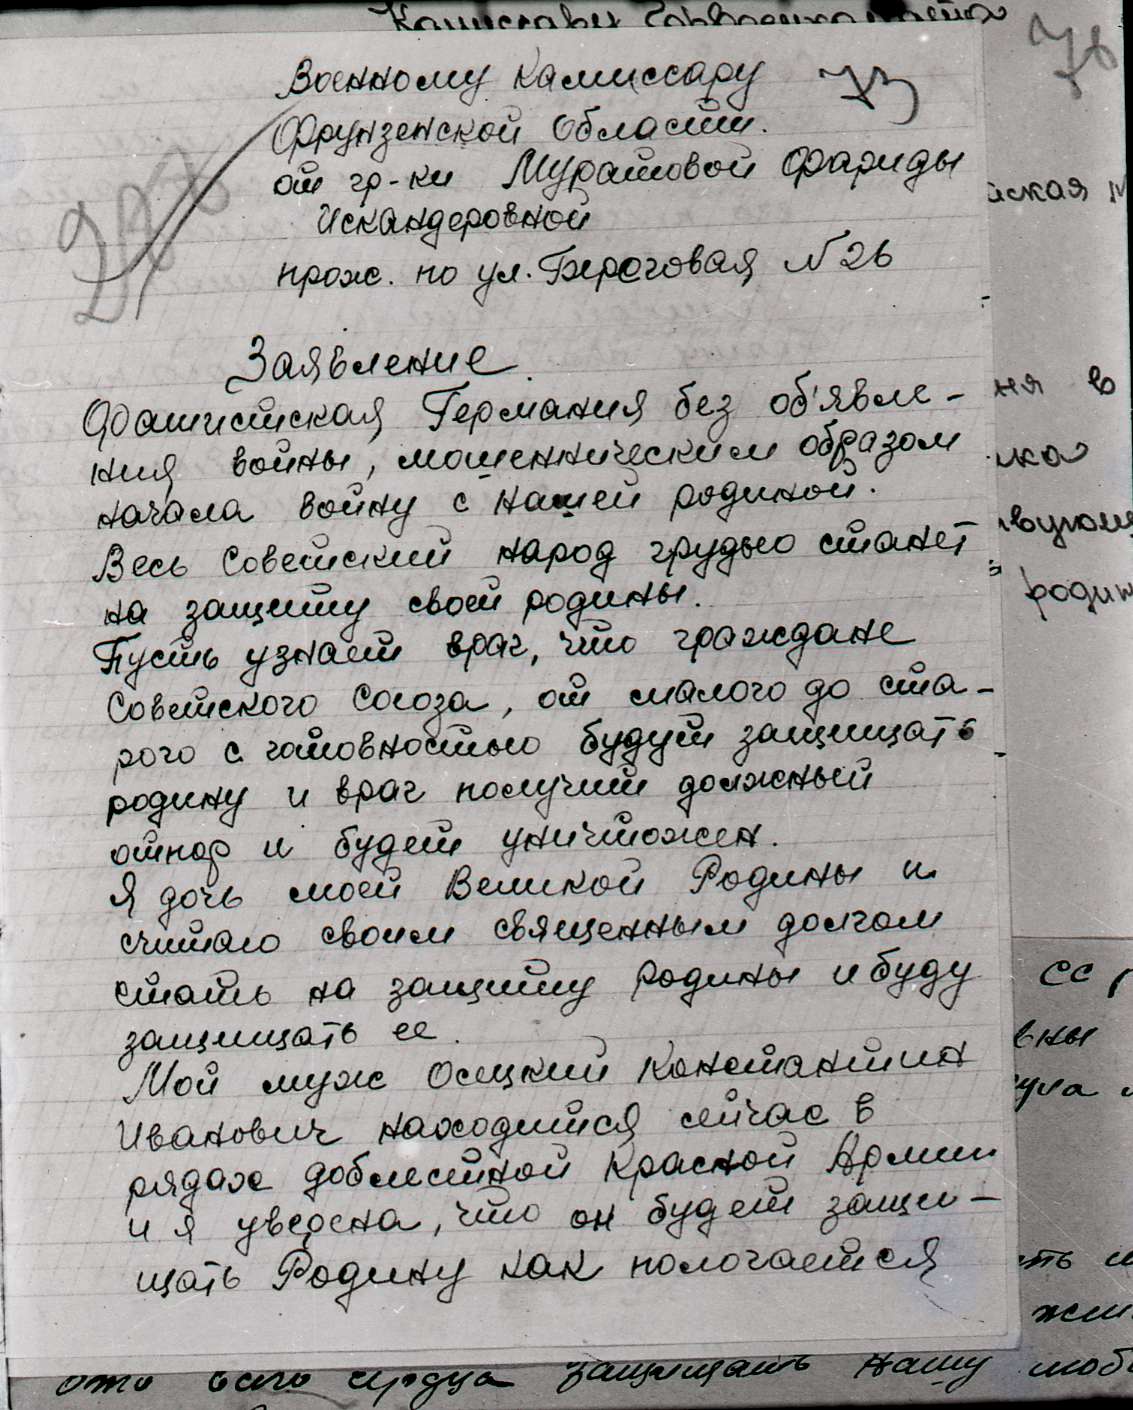 Комиссару Горвоенкомата
76
Военному Камиссару 73
Фрунзенской Области.
от гр-ки Муратовой Фариды
Искандеровной
прож. по ул. Береговая N 26
Заявление.
Фашистская Германия без об'явле-
ния войны, мошенническим образом
начала войну с нашей родиной.
Весь Советский народ грудью станет
на защиту своей родины.
Пусть узнает враг, что граждане
Советского Союза, от малого до ста-
рого с готовностью будут защищать
родину и враг получит должный
отпор и будет уничтожен.
Я дочь моей Великой Родины и
считаю своим священным долгом
стать на защиту родины и буду
защищать ее.
Мой муж Осецкий Константин
Иванович находится сейчас в
рядах доблестной Красной Армии
и я уверена, что он будет защи-
щать Родину как пологается
ото всего сердца защищать нашу